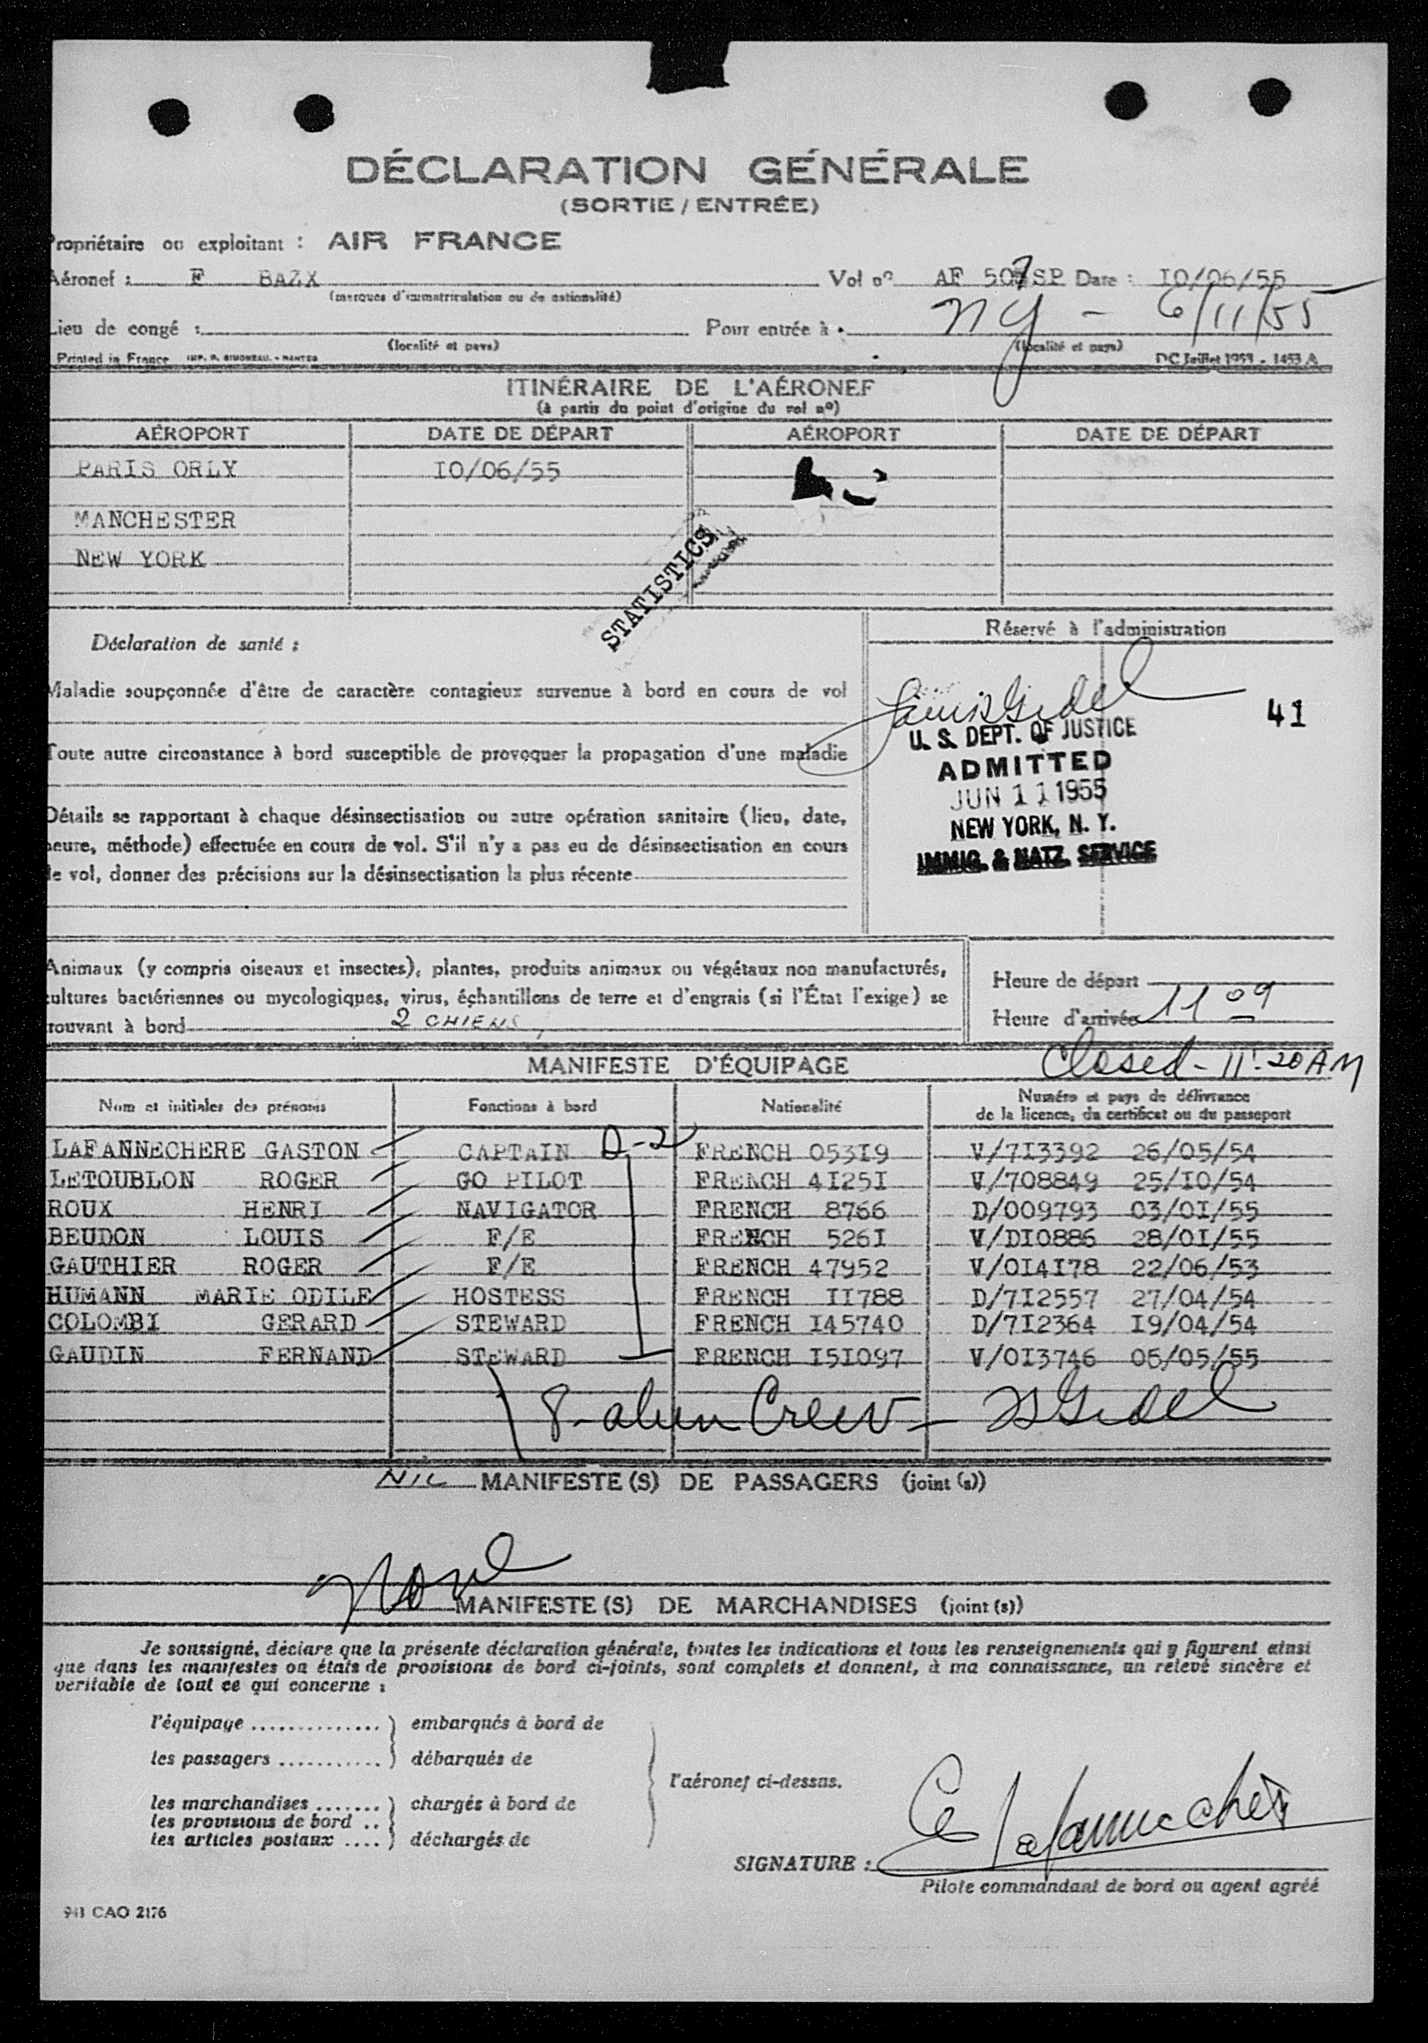 DÉCLARATION GÉNÉRALE
(SORTIE / ENTRÉE)
Propriétaire ou exploitant : AIR FRANCE
Aéronef : F BAZX Vol nº AF 507SP Date : I0/06/55
(marques d'immatriculation ou de nationalité)
Lieu de congé : Pour entrée à NY - 6/11/55
(localité et pays) (localité et pays)
Printed in France IMP. R. SIMONEAU. - NANTES DC Juillet 1953 - 1453 A
ITINÉRAIRE DE L'AÉRONEF
(à partir du point d'origine du vol nº)
AÉROPORT DATE DE DÉPART AÉROPORT DATE DE DÉPART
PARIS ORLY I0/06/55
MANCHESTER
NEW YORK
STATISTICS
Déclaration de santé :
Réservé à l'administration
Maladie soupçonnée d'être de caractère contagieux survenue à bord en cours de vol
41
U. S. DEPT. OF JUSTICE
Toute autre circonstance à bord susceptible de provoquer la propagation d'une maladie
ADMITTED
JUN 11 1955
NEW YORK, N. Y.
IMMIG. & NATZ. SERVICE
Détails se rapportant à chaque désinsectisation ou autre opération sanitaire (lieu, date,
heure, méthode) effectuée en cours de vol. S'il n'y a pas eu de désinsectisation en cours
de vol, donner des précisions sur la désinsectisation la plus récente
Animaux (y compris oiseaux et insectes), plantes, produits animaux ou végétaux non manufacturés,
cultures bactériennes ou mycologiques, virus, échantillons de terre et d'engrais (si l'État l'exige) se
trouvant à bord 2 CHIENS
Heure de départ
Heure d'arrivée 11 09
MANIFESTE D'ÉQUIPAGE Closed - 11:20 AM
Nom et initiales des prénoms Fonctions à bord Nationalité Numéro et pays de délivrance
de la licence, du certificat ou du passeport
LAFANNECHERE GASTON CAPTAIN D-2 FRENCH 053I9 V/7I3392 26/05/54
LETOUBLON ROGER GO PILOT FRENCH 4I25I V/708849 25/I0/54
ROUX HENRI NAVIGATOR FRENCH 8766 D/009793 03/0I/55
BEUDON LOUIS F/E FRENCH 526I V/DI0886 28/0I/55
GAUTHIER ROGER F/E FRENCH 47952 V/0I4I78 22/06/53
HUMANN MARIE ODILE HOSTESS FRENCH II788 D/7I2557 27/04/54
COLOMBI GERARD STEWARD FRENCH I45740 D/7I2364 I9/04/54
GAUDIN FERNAND STEWARD FRENCH I5I097 V/0I3746 05/05/55
8 - alien Crew - Gidel
NIL MANIFESTE (S) DE PASSAGERS (joint (s))
None
MANIFESTE (S) DE MARCHANDISES (joint (s))
Je soussigné, déclare que la présente déclaration générale, toutes les indications et tous les renseignements qui y figurent ainsi
que dans les manifestes ou états de provisions de bord ci-joints, sont complets et donnent, à ma connaissance, un relevé sincère et
véritable de tout ce qui concerne :
l'équipage .............. ) embarqués à bord de
les passagers ........... ) débarqués de
l'aéronef ci-dessus.
les marchandises ....... ) chargés à bord de
les provisions de bord ..
les articles postaux .... ) déchargés de
SIGNATURE :
Pilote commandant de bord ou agent agréé
941 CAO 2176